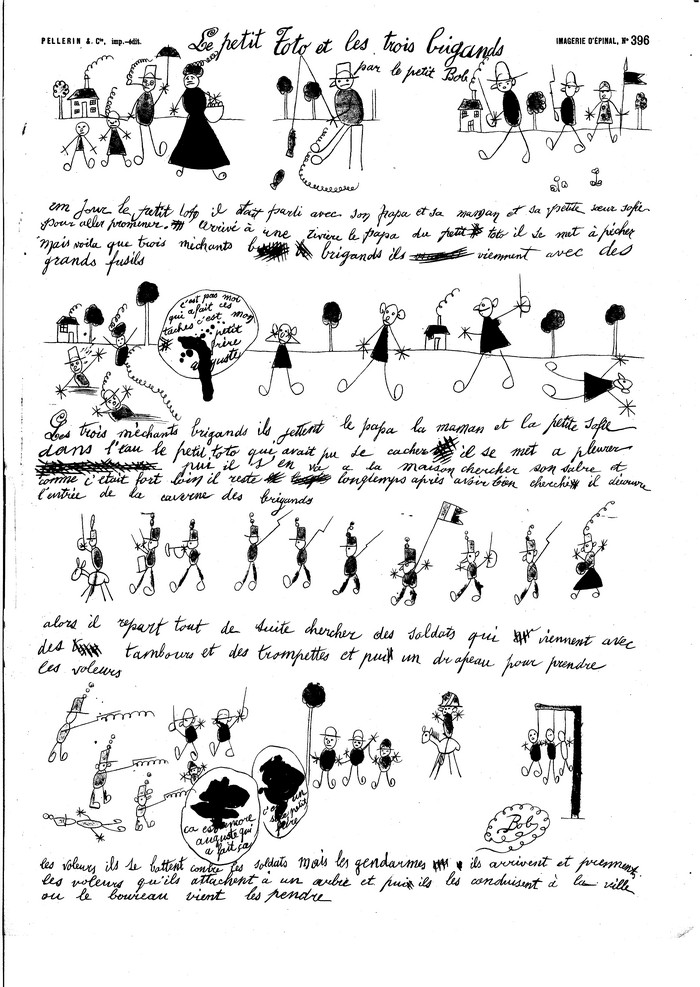 PELLERIN & Cie, imp.-édit.
Le petit Toto et les trois brigands
IMAGERIE D'ÉPINAL, No 396
par le petit Bob
un jour le petit toto il était parti avec son papa et sa maman et sa petite sœur sofie
pour aller prominer. arrivé à une rivière le papa du petit toto il se met à pécher
mais voila que trois méchants b brigands ils viennent avec des
grands fusils
c'est pas moi
qui a fait ces
taches c'est mon
petit
frère
auguste
Les trois méchants brigands ils jettent le papa la maman et la petite sofie
dans l'eau le petit toto que avait pu se cacher il se met a pleurer
puis il s'en va a la maison chercher son sabre et
comme c'était fort loin il reste longtemps après avoir bien cherché il découvre
l'entrée de la caverne des brigands
alors il repart tout de suite chercher des soldats qui viennent avec
des tambours et des trompettes et puis un drapeau pour prendre
les voleurs
ça est encore
auguste qui
a fait ça
c'est un
petit
frère
Bob
les voleurs ils se battent contre les soldats mais les gendarmes ils arrivent et prennent
les voleurs qu'ils attachent à un arbre et puis ils les conduisent à la ville
ou le boureau vient les pendre